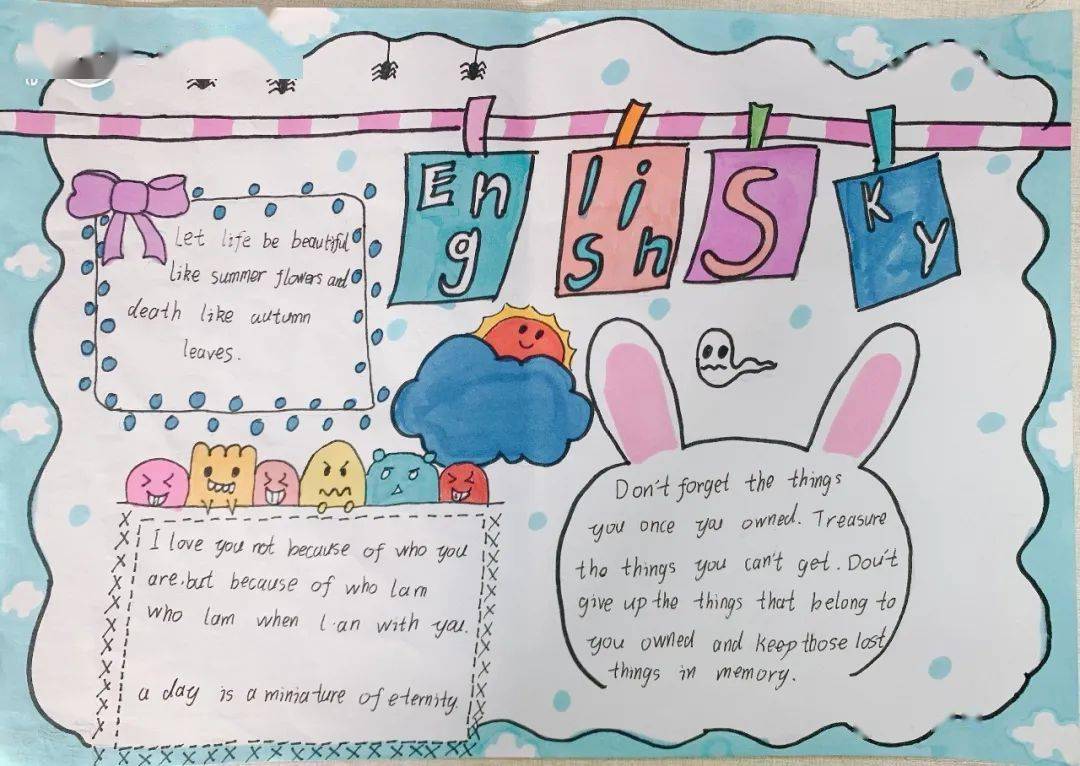 English Sky
Let life be beautiful
like summer flowers and
death like autumn
leaves.
I love you not because of who you
are,but because of who lam
who lam when l.an with you.
a day is a miniature of eternity.
Don't forget the things
you once you owned. Treasure
tho things you can't get. Dou't
give up the things that belong to
you owned and keep those lost
things in memory.